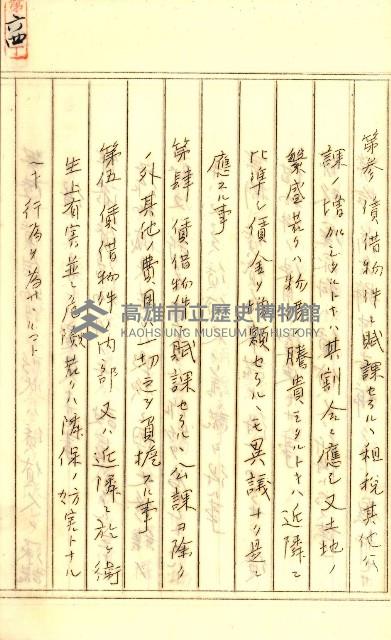 第六四
第参 賃借物件ニ賦課セラルヽ租税其他公
課ノ増加シタルトキハ其割合ニ應シ又土地ノ
繁盛若クハ物價騰貴シタルトキハ近隣ニ
比準シ價金ヲ増額セラルヽモ異議ナク是ニ
應スル事
第肆 賃借物件ニ賦課セラルヽ公課ヲ除ク
ノ外其他ノ費用ハ一切之ヲ負擔スル事
第伍 賃借物件ノ内部又ハ近隣ニ於テ衛
生上有害並ニ危險若クハ隣保ノ妨害トナル
ヘキ行為ヲ為サヽルコト
高雄市立歷史博物館
KAOHSIUNG MUSEUM OF HISTORY